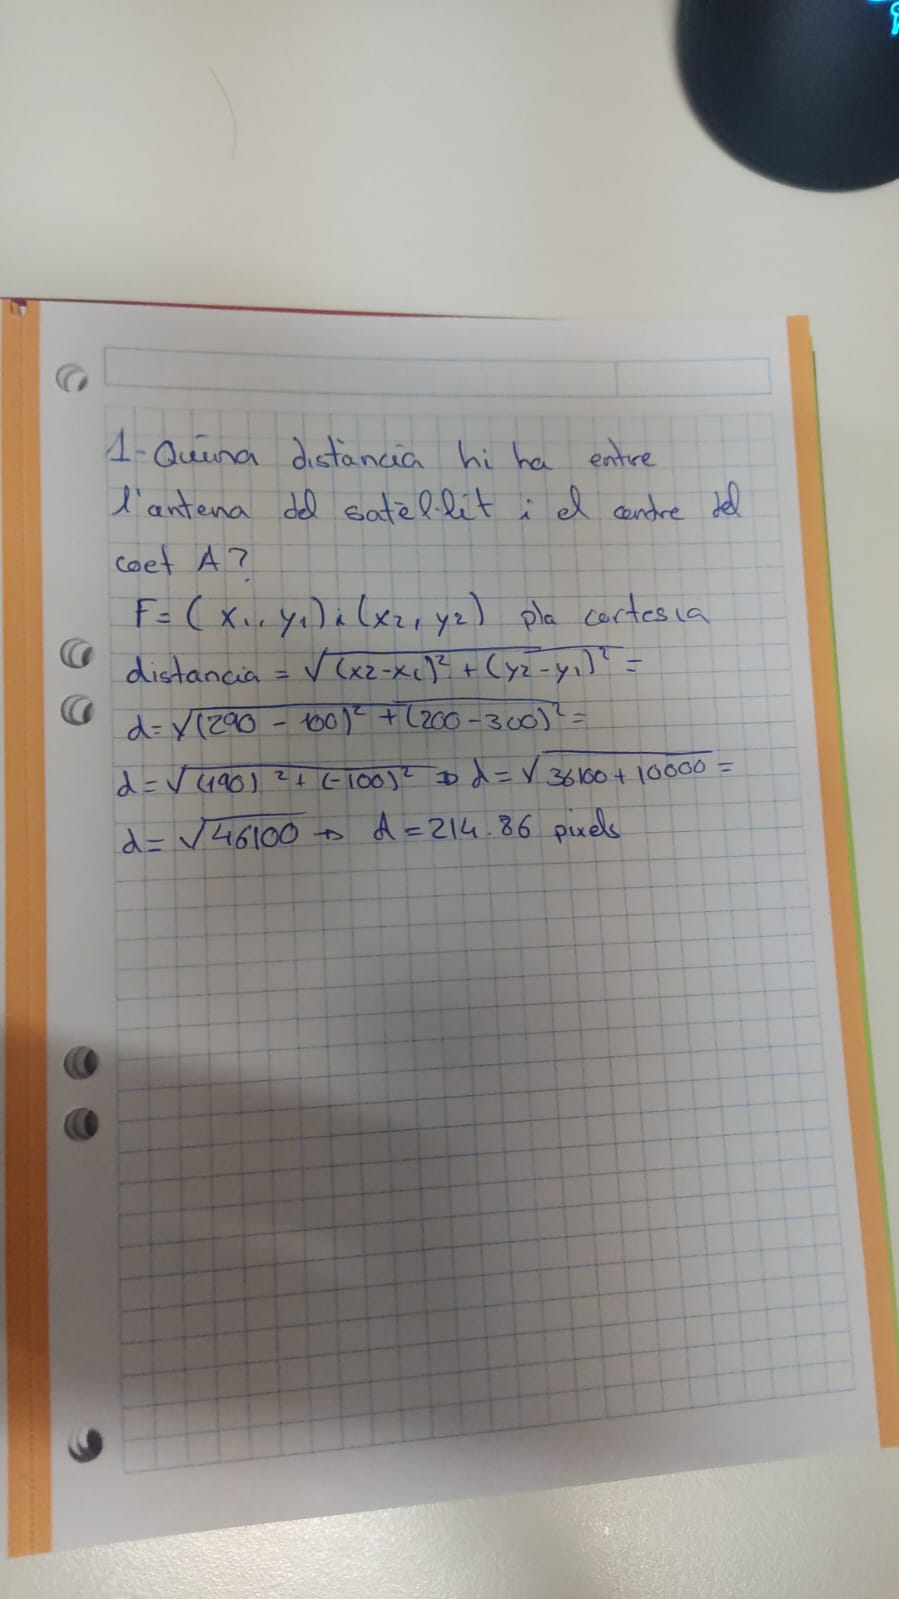 1-Quina distància hi ha entre
l'antena del satèl·lit i el centre del
coet A?
F=(x1, y1) i (x2, y2) pla cartesia
distancia = √(x2-x1)² + (y2-y1)² =
d=√(290 - 100)² + (200-300)² =
d=√(190)² + (-100)² ⇒ d=√36100+10000 =
d= √46100 → d=214.86 pixels